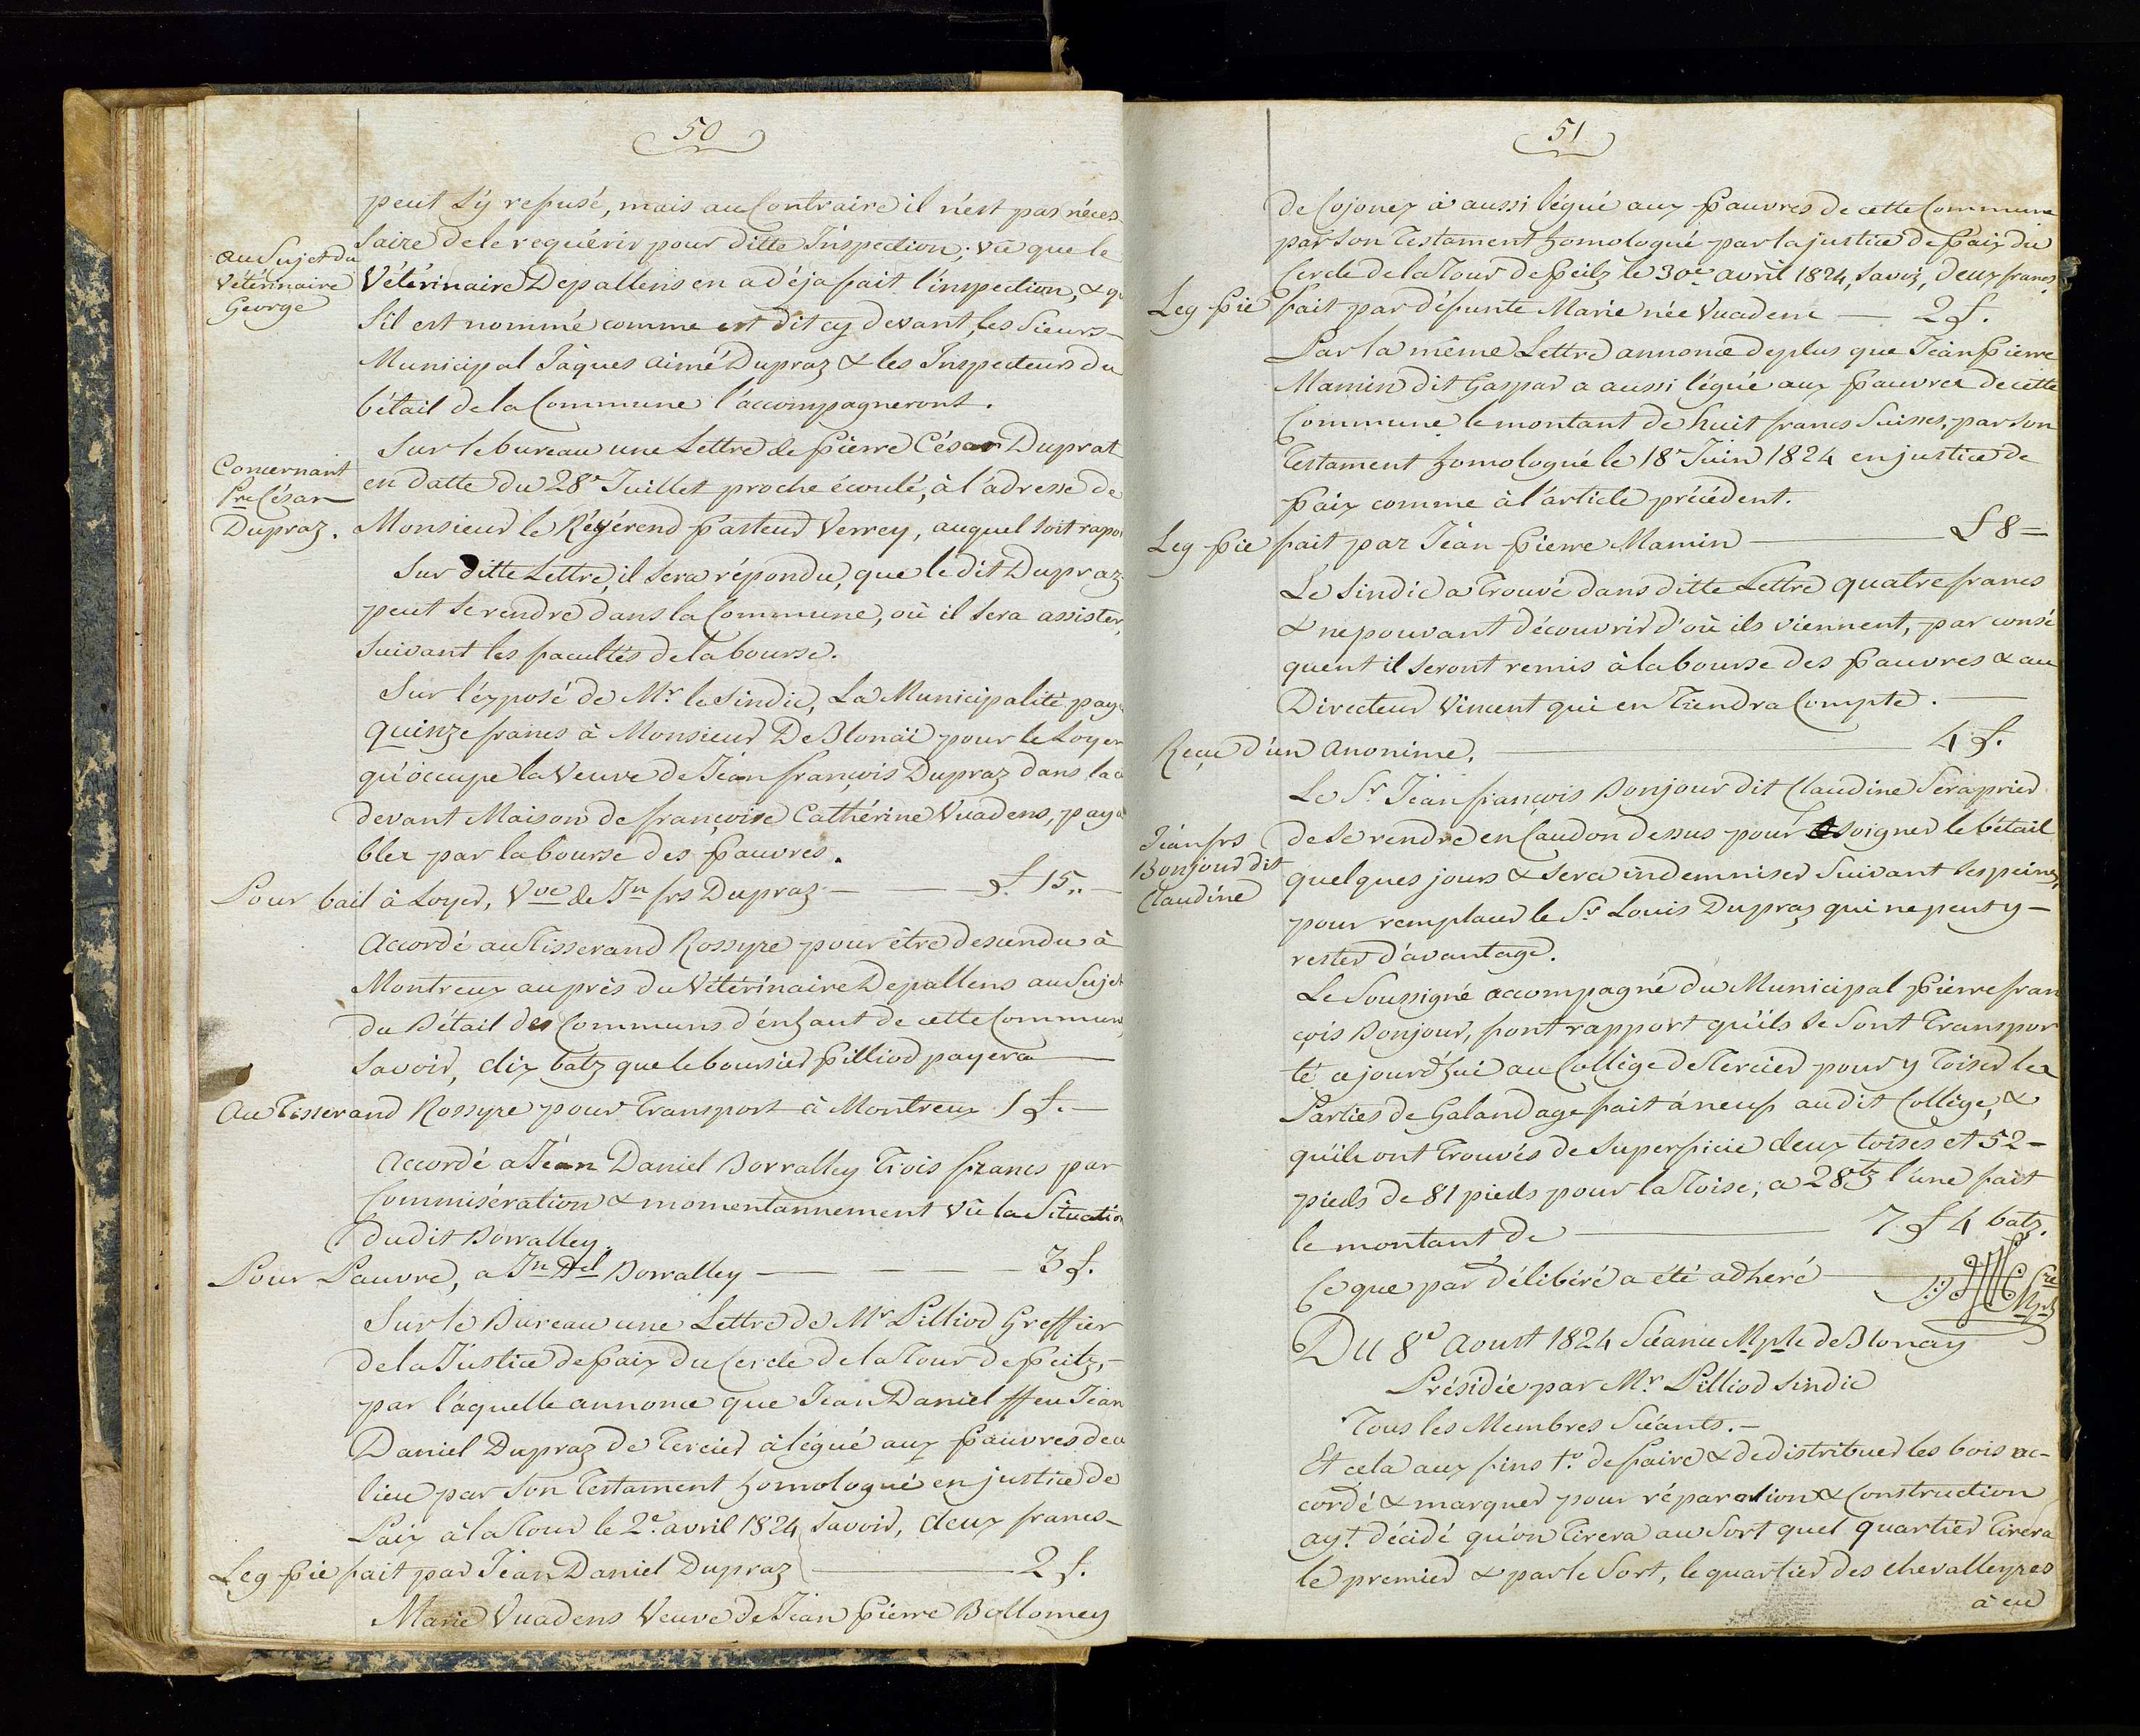 50
peut s'y refusé, mais au Contraire il n'est pas néces-
au Sujet du
Vétérinaire
George
saire de le requérir pour ditte Inspection; vû que le
Vétérinaire Depallens en a déja fait l'inspection, & q
s'il est nommé comme est dit cy devant, les Sieurs
Municipal Jâques aimé Dupraz & les Inspecteurs du
bétail de la Commune l'accompagneront.
Concernant
Pre César
Dupraz.
Sur le bureau une Lettre de Pierre César Duprat
en datte du 28e Juillet proche écoulé, à l'adresse de
Monsieur le Révérend Pasteur Verrey, auquel soit rapo
Sur ditte Lettre, il sera répondu, que le dit Dupraz
peut se rendre dans la Commune, où il sera assister,
suivant les facultés de la bourse.
Sur l'éxposé de Mr. le Sindic, La Municipalité paye
quinze francs à Monsieur De Blonaÿ pour le Loyer
qu'occupe la Veuve de Jéan françois Dupraz dans la c
devant Maison de françoise Cathérine Vuadens, paya
bles par la bourse des Pauvres.
Pour bail à Loyer, Vve de Jn frs Dupraz — — £ 15 „ —
Accordé au Tisserand Rossyre pour être descendu à
Montreux auprès du Vétérinaire Depallens au Sujet
du Bétail des Communs d'énhaut de cette Commune
Savoir, dix batz que le boursier Pilliod payera
Au Tisserand Rossyre pour Transport à Montreux 1 f. —
Accordé a Jéan Daniel Borralley Trois francs par
Commisération & momentannement vû la Situation
du dit Borralley.
Pour Pauvre, a Jn Del Borralley — — — 3 f.
Sur le Bureau une Lettre de Mr Pilliod Greffier
de la Justice de Paix du Cercle de la Tour de Peilz,
par l'aquelle annonce que Jean Daniel ffeu Jéan
Daniel Dupraz de Tercier à légué aux Pauvres de ce
lieu par son Testament homologué en justice de
Paix à la Tour le 2e. avril 1824 savoir, deux francs
Leg Pie fait par Jéan Daniel Dupraz — 2 f.
Marie Vuadens Veuve de Jéan Pierre Bollomey
51
de Cojonex à aussi légué aux Pauvres de cette Commune
par son Testament homologué par la justice de Paix du
Cercle de la Tour de Peilz le 30e avril 1824, savoir, deux francs,
Leg Pie fait par défunte Marie née Vuadens — 2 f.
Par la même Lettre annonce deplus que Jéan Pierre
Mamin dit Gaspar a aussi légué aux Pauvres de cette
Commune le montant de huit francs Suisses, par son
Testament homologué le 18e Juin 1824 en justice de
Paix comme à l'article précédent.
Leg Pie fait par Jéan Pierre Mamin — £ 8 =
Le Sindic a Trouvé dans ditte Lettre quatre francs
& ne pouvant découvrir d'où ils viennent, par consé
quent il seront remis à la bourse des Pauvres & au
Directeur Vincent qui en Tiendra Compte.
Reçu d'un Anonime, — 4 f.
Jéan frs
Bonjour dit
Claudine
Le Sr Jéan françois Bonjour dit Claudine Sera prier
de se rendre en Caudon dessus pour soigner le bétail
quelques jours & sera indemniser suivant ses peines,
pour remplacer le Sr Louis Dupraz qui ne peut y
rester d'avantage.
Le Soussigné accompagné du Municipal Pierre fran
çois Bonjour, font rapport qu'ils se sont Transpor
té ce jourd'hui au Collège de Tercier pour y Toiser les
Parties de Galandage fait à neuf au dit Collège, &
qu'ils ont Trouvés de Superficie deux toises et 52
pieds de 81 pieds pour la Toise, a 28 btz l'une fait
le montant de — 7 f 4 batz.
Ce que par délibéré a été adheré
Du 8e Aoust 1824 Séance Mple de Blonay
Présidée par Mr. Pilliod Sindic
Tous les Membres Séants. —
Et cela aux fins 1o. de faire & de distribuer les bois ac-
cordé & marquer pour réparation & Construction
ayt. décidé qu'on Tirera au Sort quel quartier Tirera
le premier & par le Sort, le quartier des chevalleyres
à eu